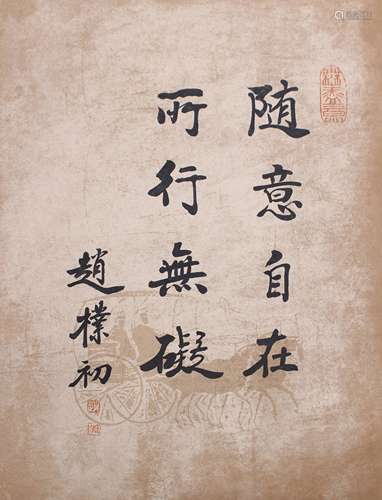 随意自在
所行無礙
趙樸初